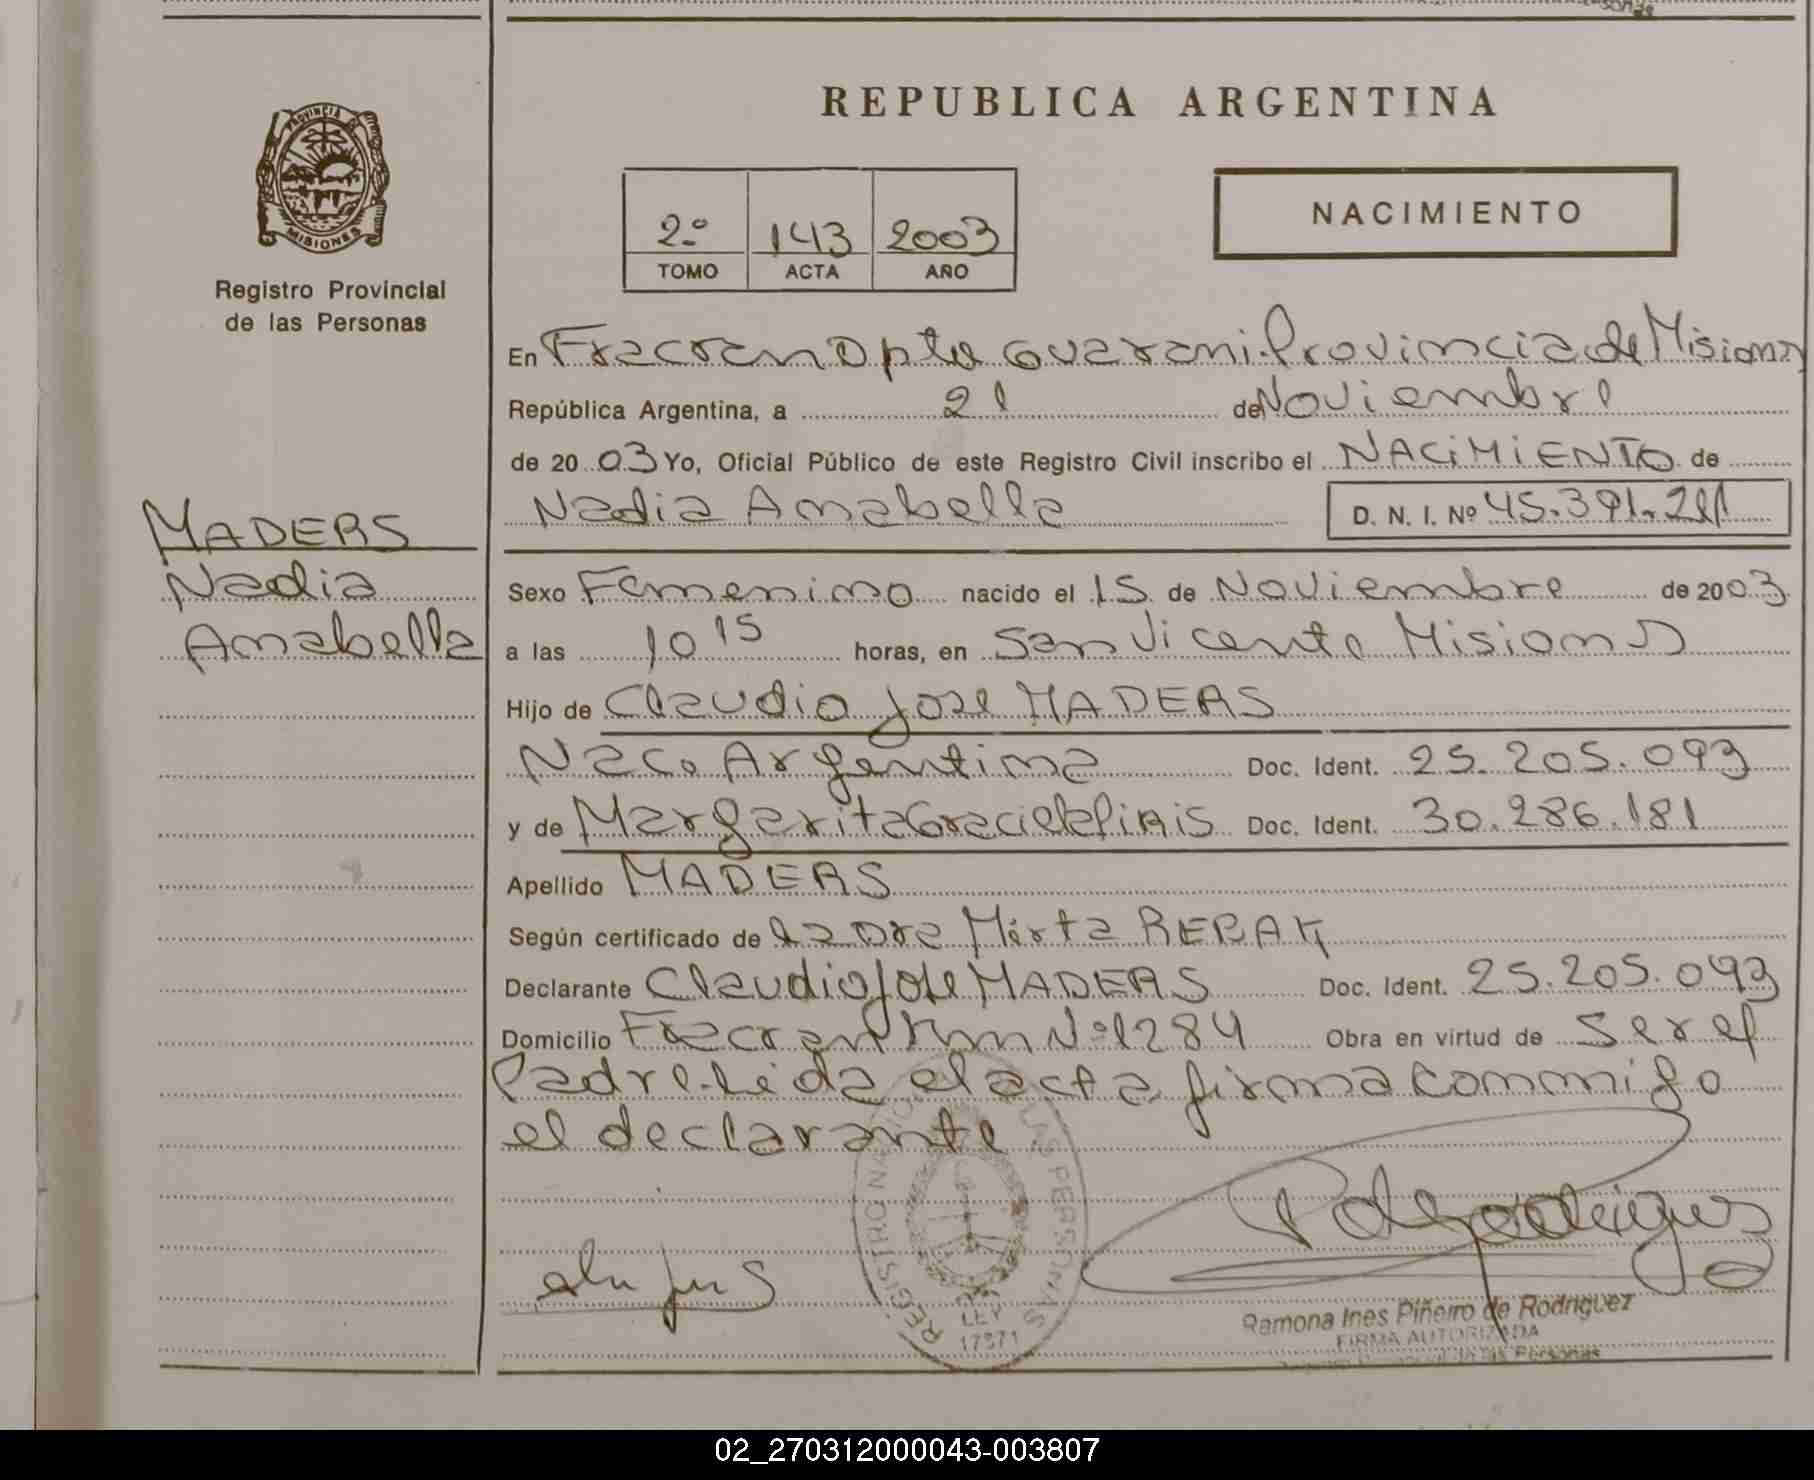 REPUBLICA ARGENTINA
PROVINCIA DE
MISIONES
Registro Provincial
de las Personas
2º 143 2003
TOMO ACTA AÑO
NACIMIENTO
En Fracran Dpto Guarani. Provincia de Misiones
República Argentina, a 21 de Noviembre
de 2003 Yo, Oficial Público de este Registro Civil inscribo el NACIMIENTO de
Nadia Anabella D. N. I. Nº 45.391.211
MADERS
Nadia
Anabella
Sexo Femenino nacido el 15 de Noviembre de 2003
a las 10 15 horas, en San Vicente Misiones
Hijo de Claudio Jose MADERS
Nac. Argentina Doc. Ident. 25.205.093
y de Margarita Graciela PIRIS Doc. Ident. 30.286.181
Apellido MADERS
Según certificado de la Dra Mirta REBAK
Declarante Claudio Jose MADERS Doc. Ident. 25.205.093
Domicilio Fracran Km Nº 1284 Obra en virtud de Ser el
Padre. Leida el acta firma conmigo
el declarante
REGISTRO NACIONAL DE LAS PERSONAS
LEY
17671
Ramona Ines Piñeiro de Rodriguez
FIRMA AUTORIZADA
de las Personas
02_270312000043-003807